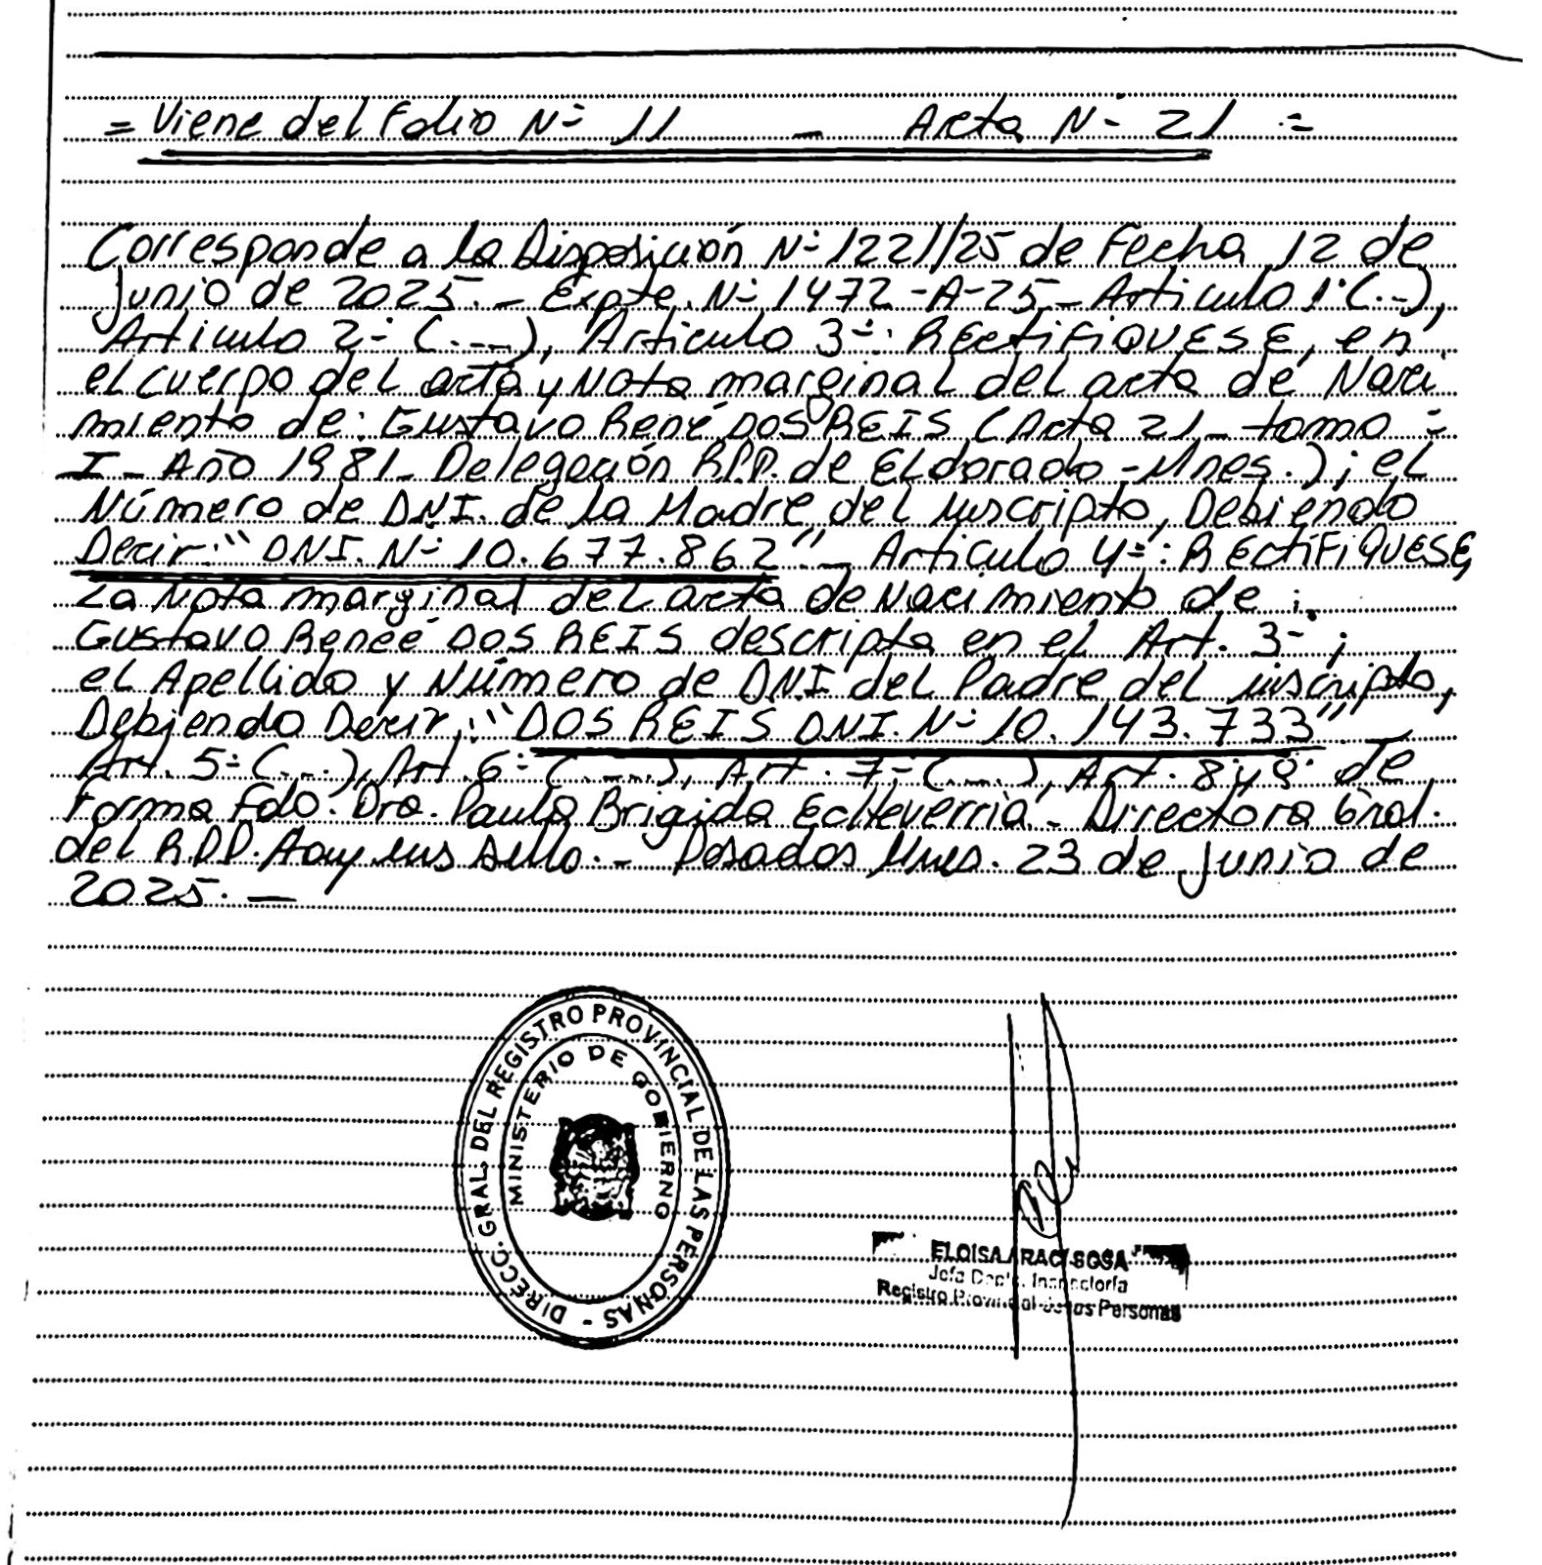 = Viene del Folio Nº 11 - Acta Nº 21 =
Corresponde a la Disposición Nº 1221/25 de Fecha 12 de
Junio de 2025.- Expte. Nº 1472-A-25- Articulo 1º (...),
Articulo 2º (...), Articulo 3º: RECTIFIQUESE, en
el cuerpo del acta y Nota marginal del acta de Naci
miento de: Gustavo René DOS REIS (Acta 21 - tomo =
I - Año 1981 - Delegación R.P.P. de Eldorado - Mnes.); el
Número de DNI. de la Madre del inscripto, Debiendo
Decir: "DNI. Nº 10.677.862" - Articulo 4º: RECTIFIQUESE,
La Nota marginal del acta de Nacimiento de :
Gustavo Reneé DOS REIS descripta en el Art. 3º ;
el Apellido y Número de DNI del Padre del inscripto,
Debiendo Decir: "DOS REIS DNI. Nº 10.143.733" -
Art. 5º (...), Art. 6º (...), Art. 7º (...), Art. 8 y 9º de
forma Fdo. Dra. Paula Brigida Echeverria - Directora Gral.
del R.P.P. Hay un sello.- Posadas Mnes. 23 de Junio de
2025. -
DIRECC. GRAL. DEL REGISTRO PROVINCIAL DE LAS PERSONAS -
MINISTERIO DE GOBIERNO
ELOISA ARACI SOSA
Jefa Dpto. Inspectoría
Registro Provincial de las Personas